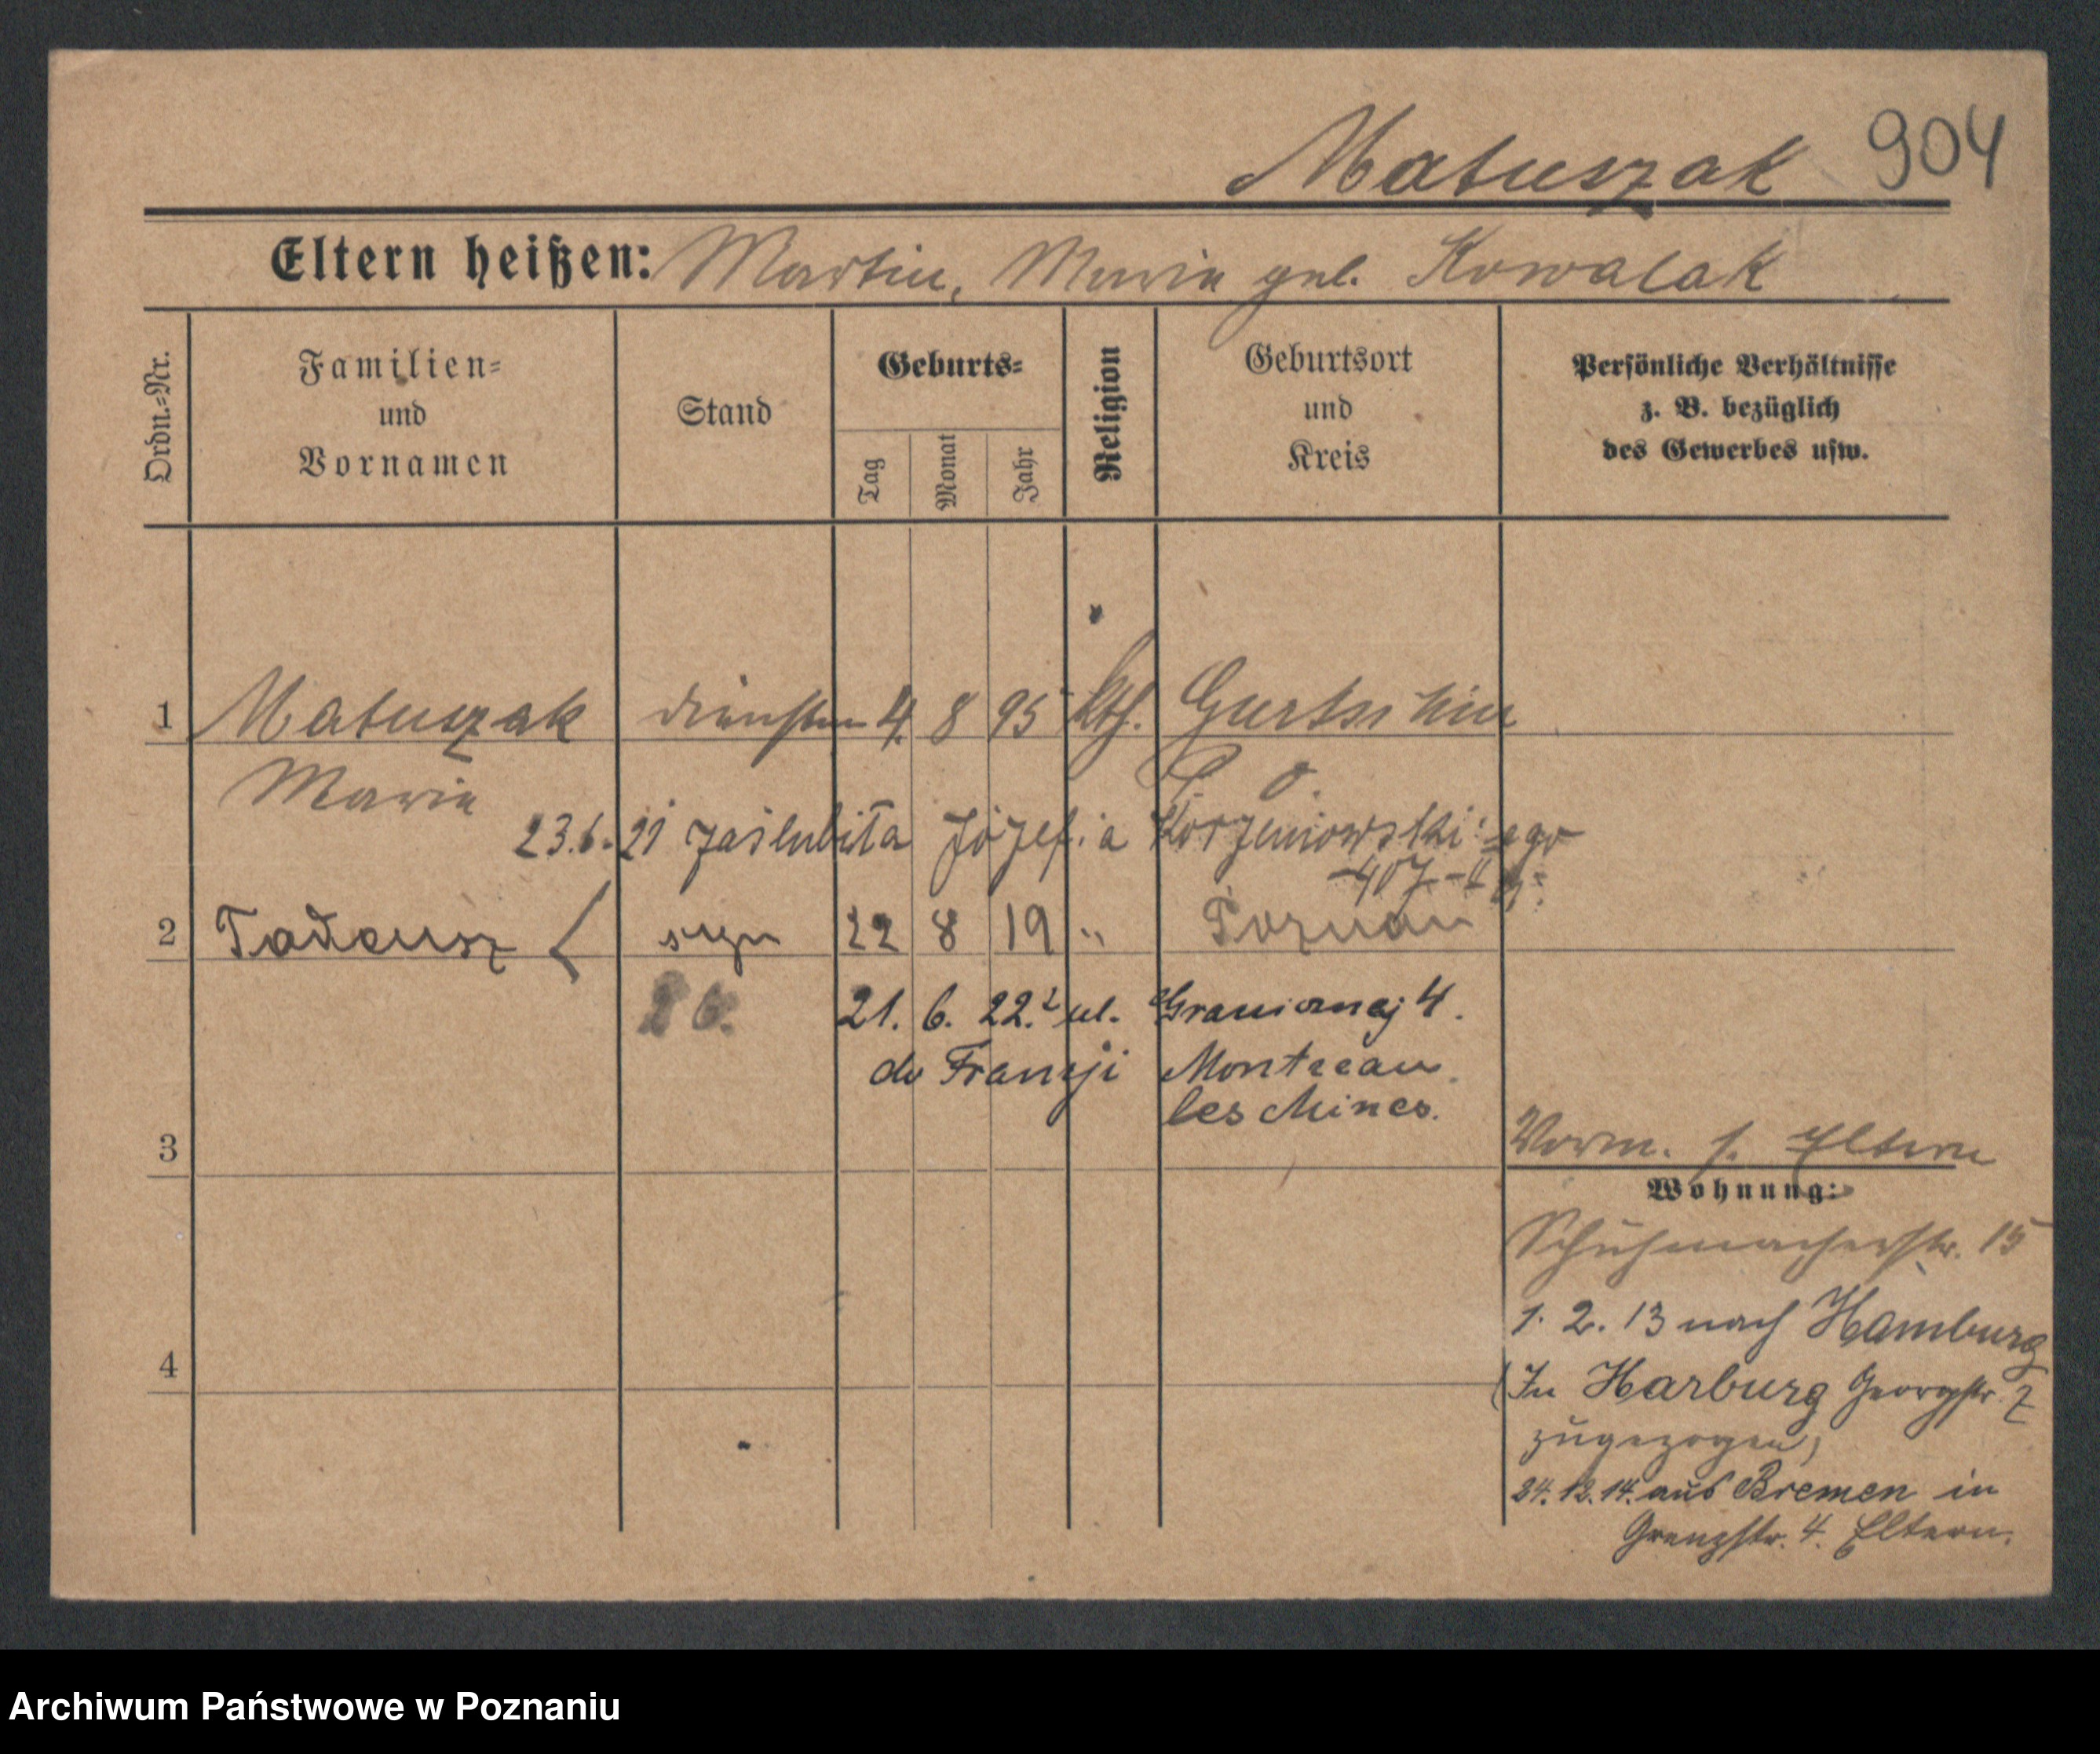 Matuszak 904
Eltern heißen: Martin, Maria geb. Kowalak
Ordn.=Nr.
Familien=
und
Vornamen
Stand
Geburts=
Tag
Monat
Jahr
Religion
Geburtsort
und
Kreis
Persönliche Verhältnisse
z. B. bezüglich
des Gewerbes usw.
1 Matuszak 4. 8 95 kth. Gurtschin
Maria
23.6.21 zaślubiła Józef:a Korzeniowski:ego
2 Tadeusz syn 22 8 19 " Poznań
21. 6. 22. z ul. Granicznej 4.
do Francji Montceau
les Mines.
3
Vorm. s. Eltern
Wohnung:
Schuhmacherstr. 15
1. 2. 13 nach Hamburg
4
(In Harburg Georgstr. 7
zugezogen)
24. 12. 14. aus Bremen in
Grenzstr. 4. Eltern.
Archiwum Państwowe w Poznaniu